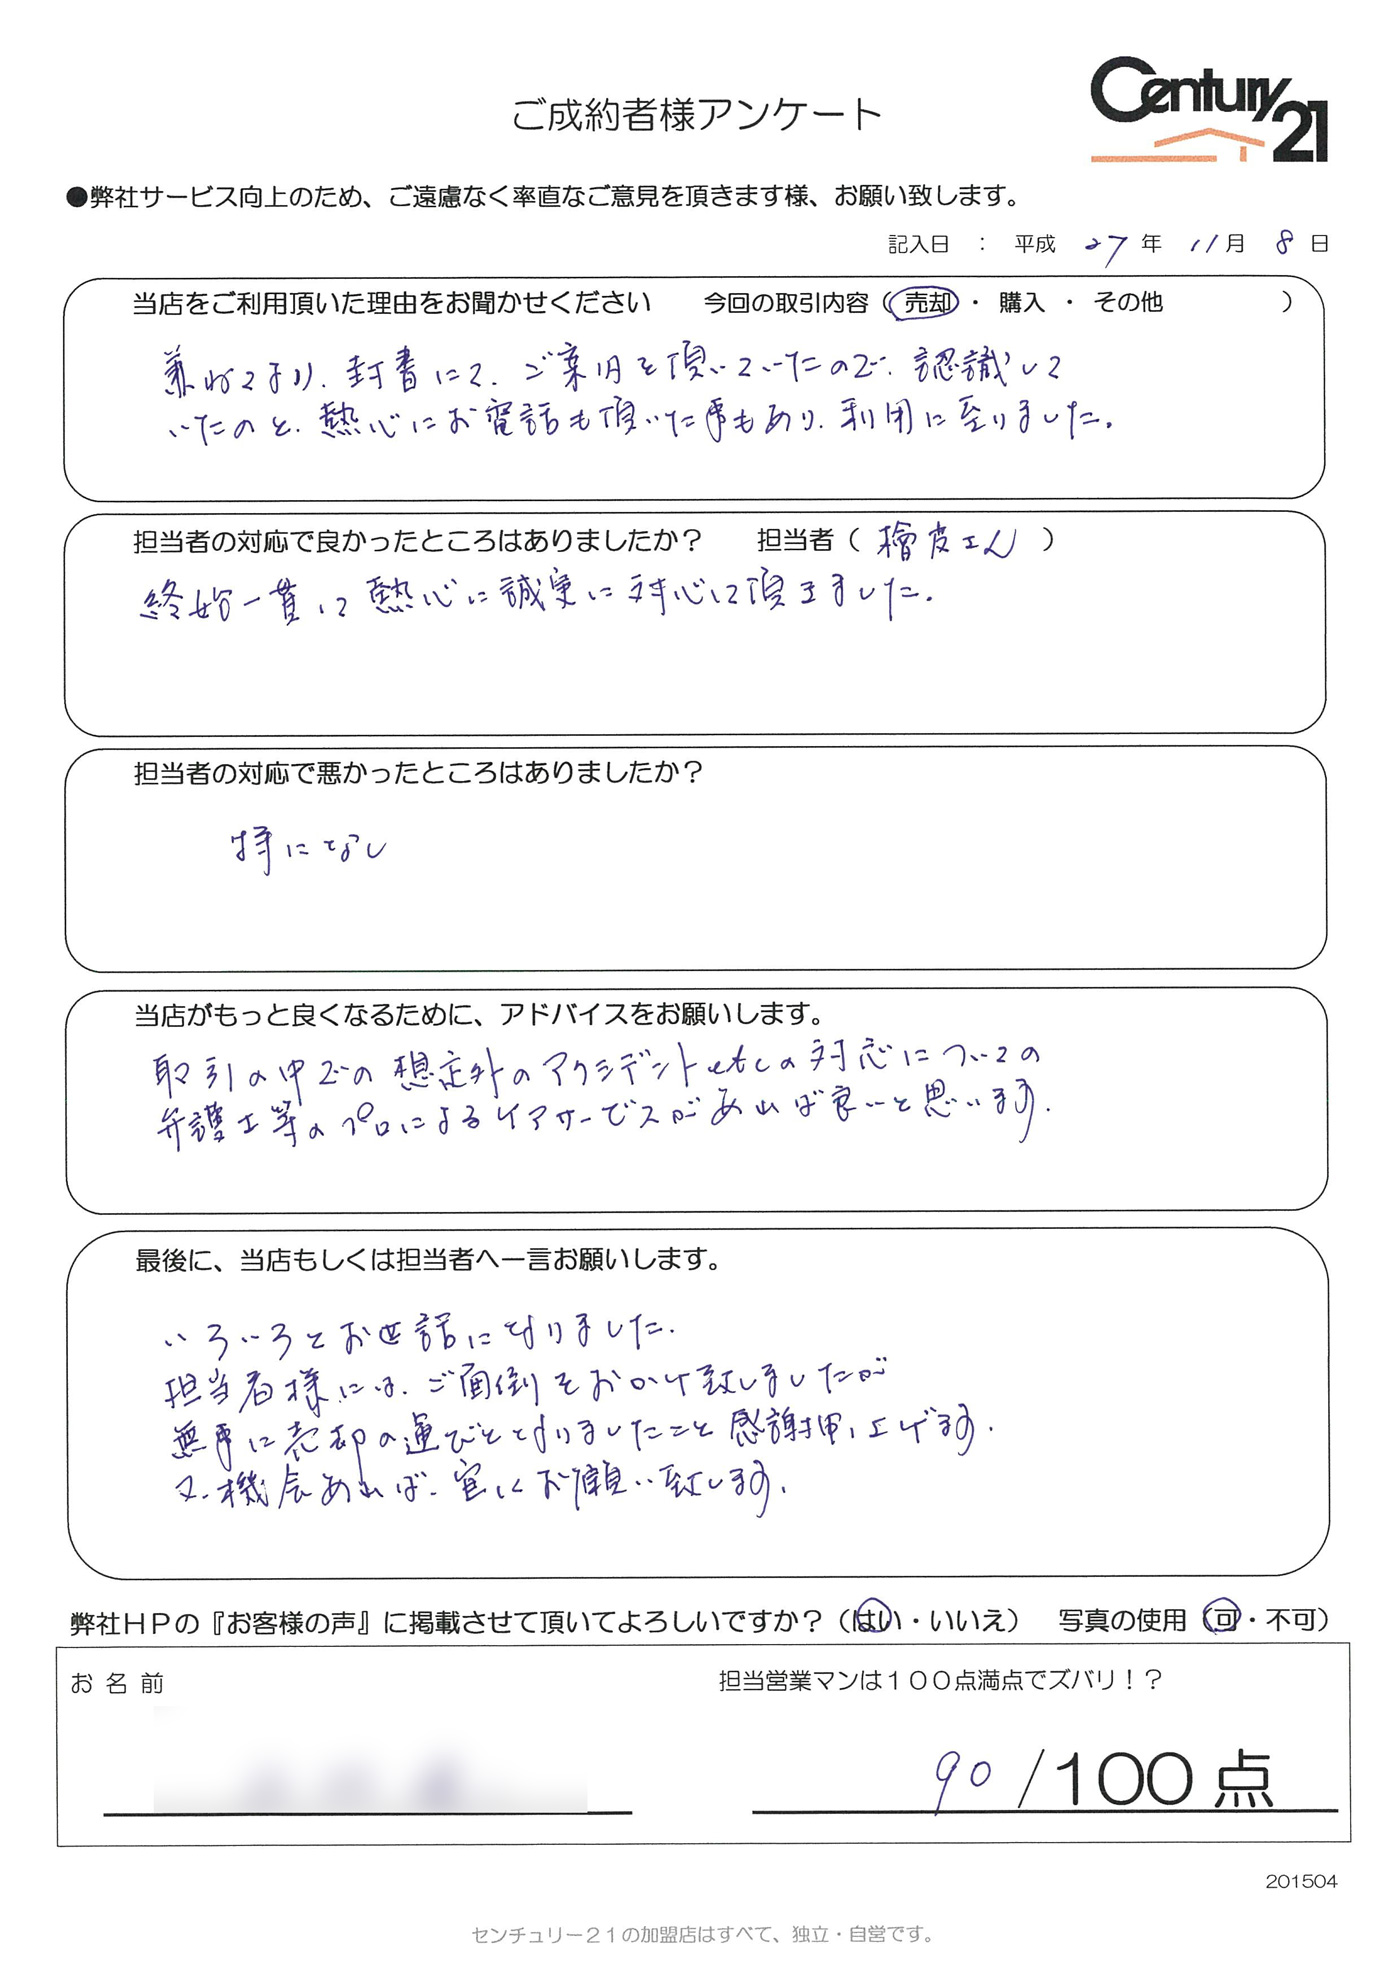 Century 21
ご成約者様アンケート
●弊社サービス向上のため、ご遠慮なく率直なご意見を頂きます様、お願い致します。
記入日 : 平成 27 年 11 月 8 日
当店をご利用頂いた理由をお聞かせください 今回の取引内容 ( 売却 ・ 購入 ・ その他 )
兼ねてより、封書にて、ご案内を頂いていたので、認識して
いたのと、熱心にお電話も頂いた事もあり、利用に至りました。
担当者の対応で良かったところはありましたか? 担当者 ( 檜皮さん )
終始一貫して熱心に誠実に対応して頂きました。
担当者の対応で悪かったところはありましたか?
特になし
当店がもっと良くなるために、アドバイスをお願いします。
取引の中での想定外のアクシデントetcの対応についての
弁護士等のプロによるケアサービスがあれば良いと思います。
最後に、当店もしくは担当者へ一言お願いします。
いろいろとお世話になりました。
担当者様には、ご面倒をおかけ致しましたが
無事に売却の運びとなりましたこと感謝申し上げます。
又、機会あれば、宜しくお願い致します。
弊社HPの『お客様の声』に掲載させて頂いてよろしいですか?(はい・いいえ) 写真の使用 (可・不可)
お名前 担当営業マンは100点満点でズバリ!?
90 /100 点
201504
センチュリー21の加盟店はすべて、独立・自営です。